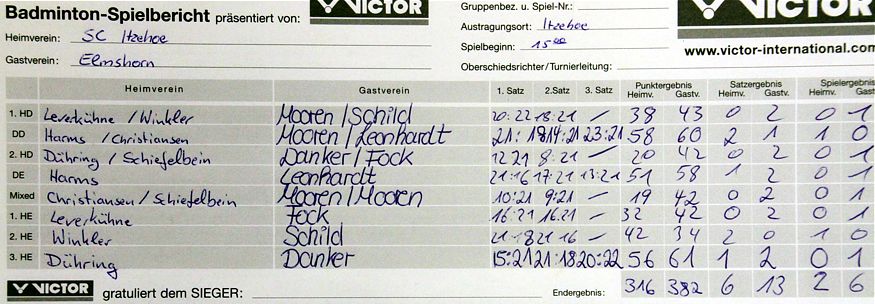 Badminton-Spielbericht präsentiert von: VICTOR
Gruppenbez. u. Spiel-Nr.:
VICTOR
Heimverein: SC Itzehoe
Austragungsort: Itzehoe
Gastverein: Elmshorn
Spielbeginn: 15 00
www.victor-international.com
Oberschiedsrichter/Turnierleitung:
Heimverein Gastverein 1. Satz 2.Satz 3. Satz Punktergebnis Heimv. Gastv. Satzergebnis Heimv. Gastv. Spielergebnis Heimv. Gast
1. HD Leverkühne / Winkler Mooren / Schild 20:22 18:21 – 38 43 0 2 0 1
DD Harms / Christiansen Mooren / Leonhardt 21:18 14:21 23:21 58 60 2 1 1 0
2. HD Dühring / Schiefelbein Danker / Fock 12 21 8:21 – 20 42 0 2 0 1
DE Harms Leonhardt 21:16 17:21 13:21 51 58 1 2 0 1
Mixed Christiansen / Schiefelbein Mooren / Mooren 10:21 9:21 – 19 42 0 2 0 1
1. HE Leverkühne Fock 16:21 16:21 – 32 42 0 2 0 1
2. HE Winkler Schild 21-18 21 16 – 42 34 2 0 1 0
3. HE Dühring Danker 15:21 21:18 20:22 56 61 1 2 0 1
VICTOR gratuliert dem SIEGER: Endergebnis: 316 382 6 13 2 6